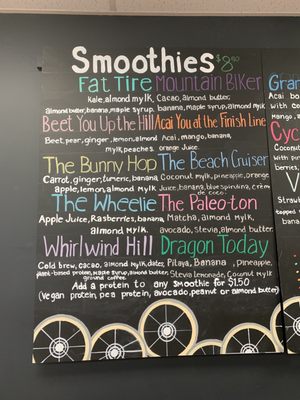 Smoothies $8.50
Fat Tire
Kale, almond mylk,
almond butter, banana, maple syrup.
Mountain Biker
Cacao, almond butter,
banana, maple syrup, almond mylk
Beet You Up the Hill
Beet, pear, ginger, lemon, almond
mylk, peaches.
Acai You at the Finish Line
Acai, mango, banana,
orange Juice.
The Bunny Hop
Carrot, ginger, tumeric, banana,
apple, lemon, almond mylk
The Beach Cruiser
Coconut mylk, pineapple, orange
Juice, banana, blue spirulina, crème
de coco.
The Wheelie
Apple Juice, Rasberries, banana,
almond mylk.
The Paleo-ton
Matcha, almond mylk,
avocado, Stevia, almond butter.
Whirlwind Hill
Cold brew, cacao, almond mylk, dates,
plant-based protein, maple syrup, almond butter,
ground coffee
Dragon Today
Pitaya, Banana, Pineapple,
Stevia Lemonade, Coconut mylk
Add a protein to any smoothie for $1.50
(Vegan protein, pea protein, avocado, peanut or almond butter)
Acai
with
Mango,
Coconut
With
Straw
topped